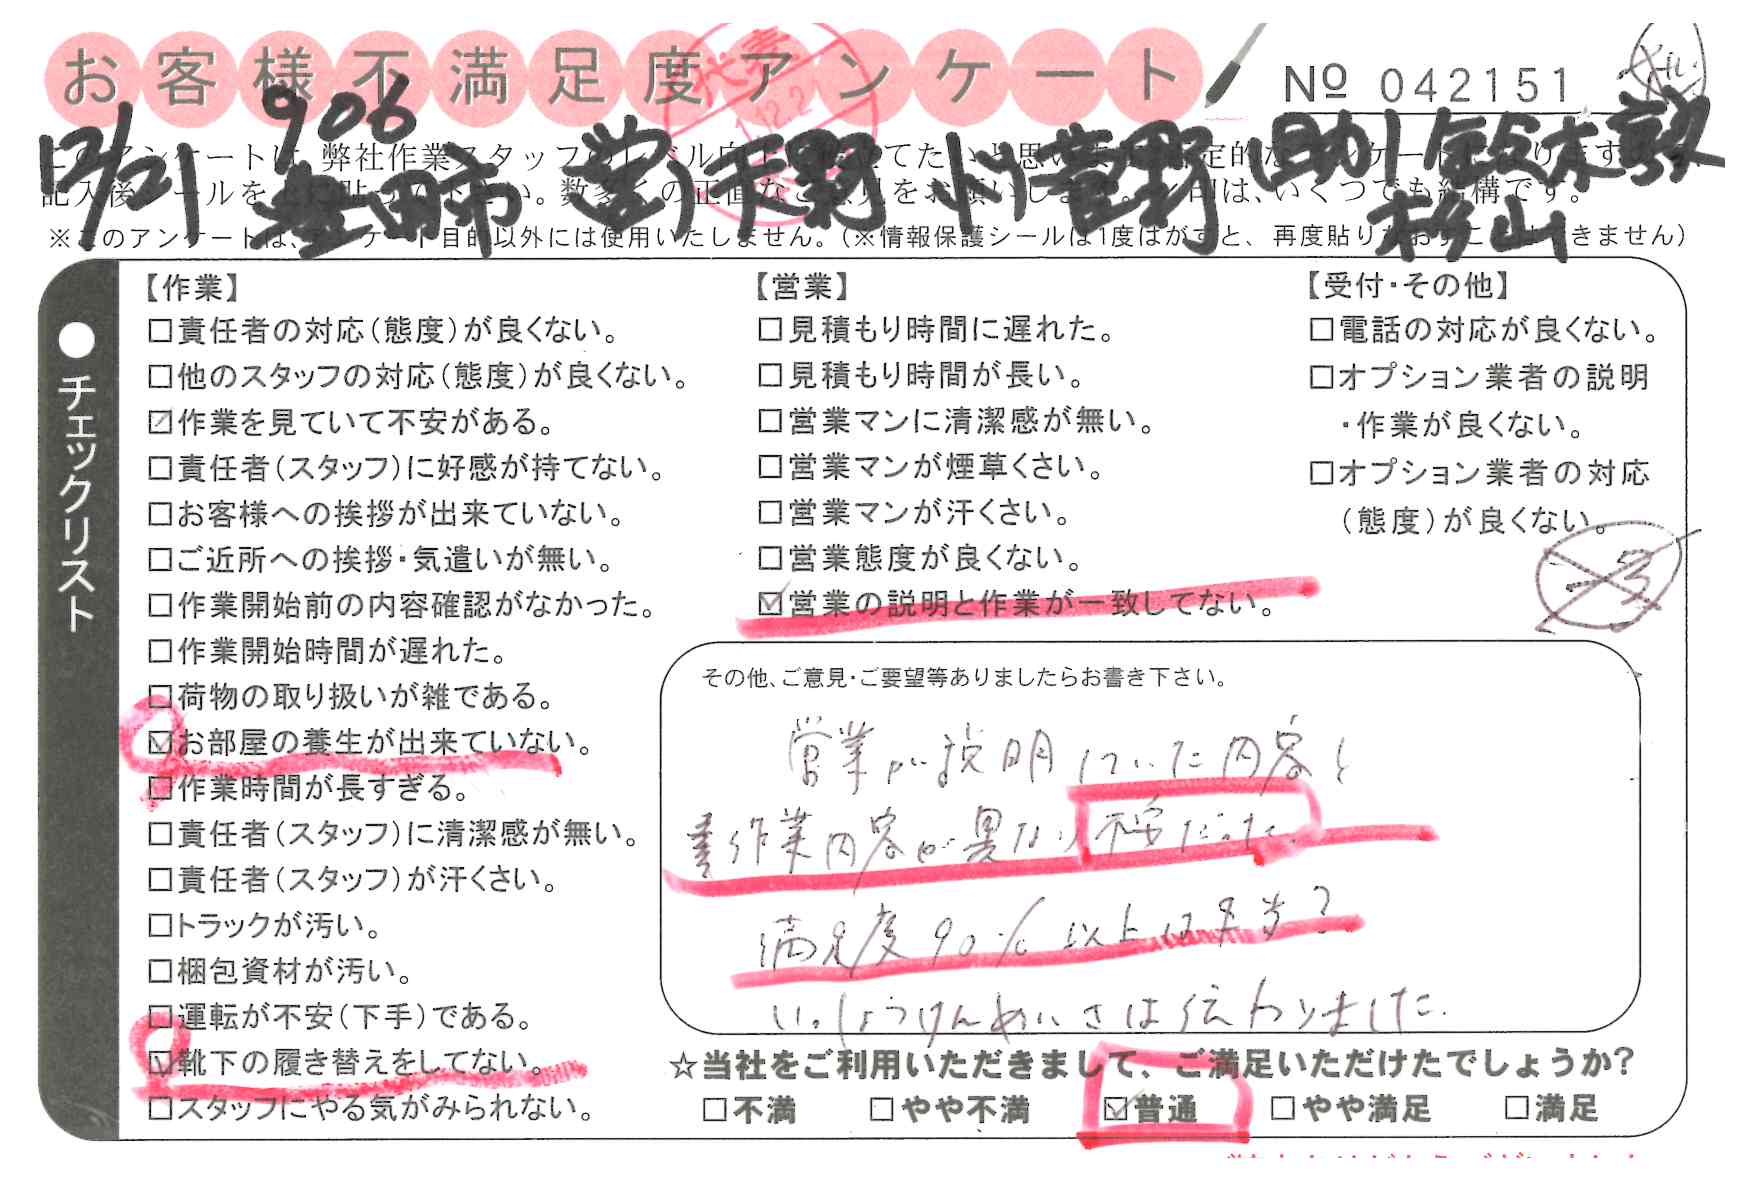 お客様不満足度アンケート
№ 042151
12/21 906 豊田市 営)天野 作)菅野 (助)鈴木敦
杉山
このアンケートは、弊社作業スタッフのレベル向
記入後シールを 数多くの正直なご意見をお願いします。 印は、いくつでも結構です。
※このアンケートは、アンケート目的以外には使用いたしません。(※情報保護シールは1度はがすと、再度貼りなおすことはできません)
●チェックリスト
【作業】
□責任者の対応(態度)が良くない。
□他のスタッフの対応(態度)が良くない。
☑作業を見ていて不安がある。
□責任者(スタッフ)に好感が持てない。
□お客様への挨拶が出来ていない。
□ご近所への挨拶・気遣いが無い。
□作業開始前の内容確認がなかった。
□作業開始時間が遅れた。
□荷物の取り扱いが雑である。
☑お部屋の養生が出来ていない。
□作業時間が長すぎる。
□責任者(スタッフ)に清潔感が無い。
□責任者(スタッフ)が汗くさい。
□トラックが汚い。
□梱包資材が汚い。
□運転が不安(下手)である。
☑靴下の履き替えをしてない。
□スタッフにやる気がみられない。
【営業】
□見積もり時間に遅れた。
□見積もり時間が長い。
□営業マンに清潔感が無い。
□営業マンが煙草くさい。
□営業マンが汗くさい。
□営業態度が良くない。
☑営業の説明と作業が一致してない。
【受付・その他】
□電話の対応が良くない。
□オプション業者の説明
・作業が良くない。
□オプション業者の対応
(態度)が良くない。
-3
その他、ご意見・ご要望等ありましたらお書き下さい。
営業が説明していた内容と
作業内容が異なり不安だった。
満足度90%以上は本当?
いっしょうけんめいさは伝わりました。
☆当社をご利用いただきまして、ご満足いただけたでしょうか?
□不満 □やや不満 ☑普通 □やや満足 □満足